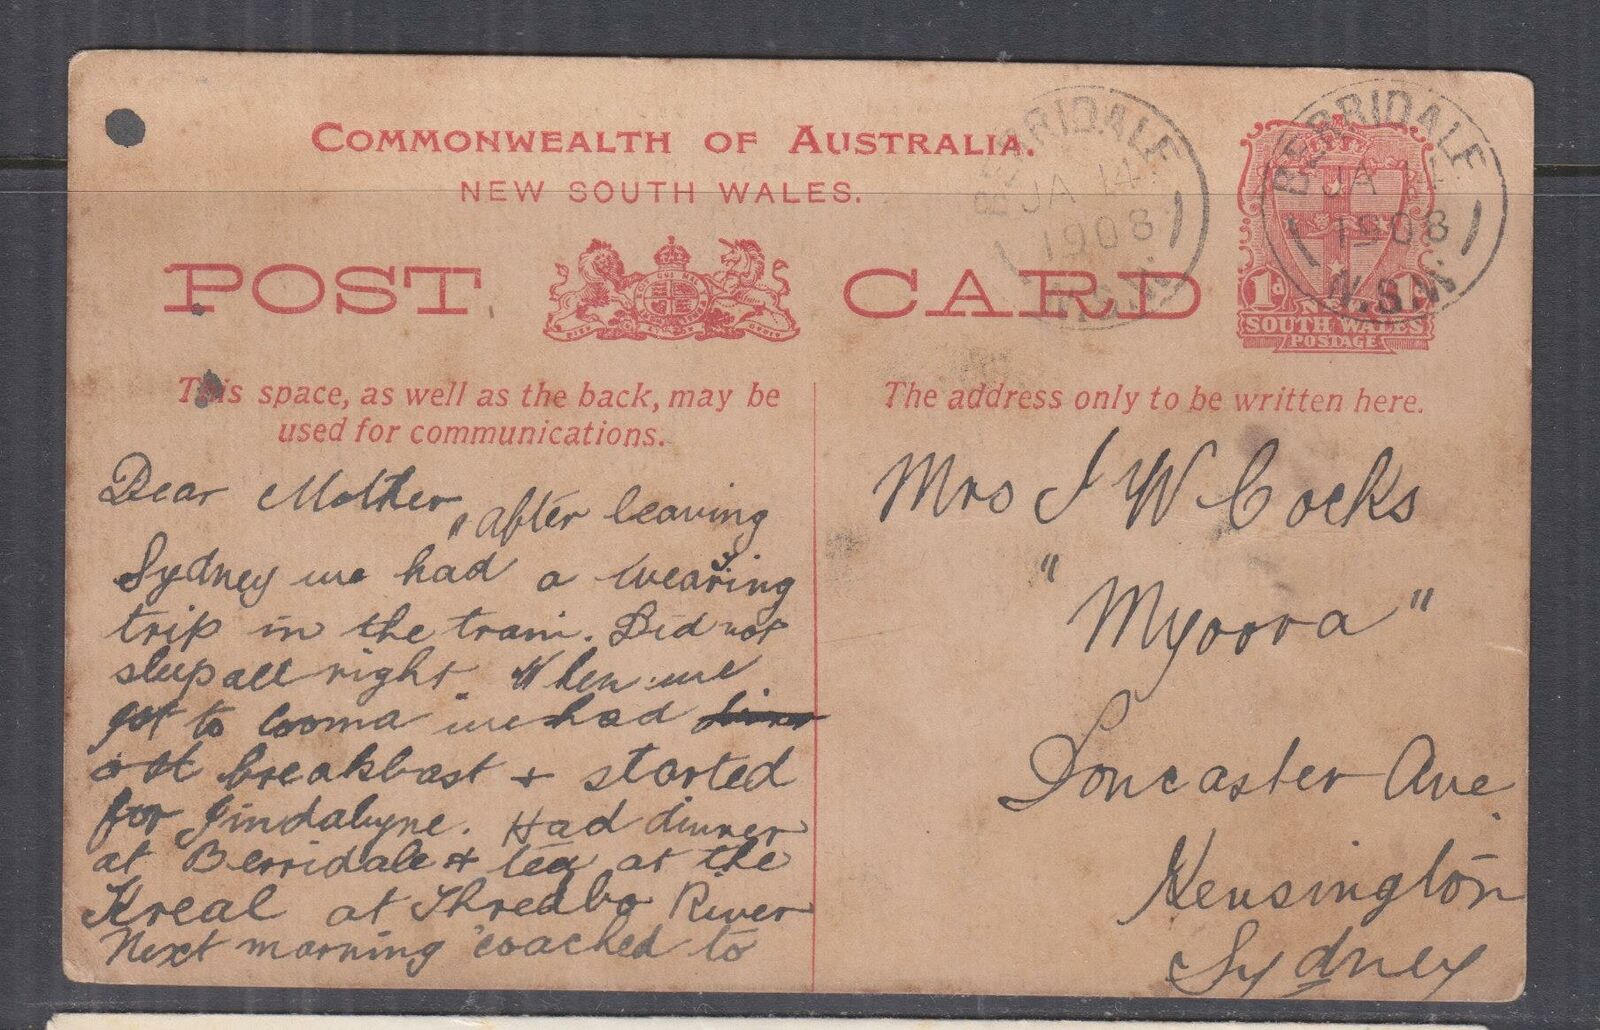 COMMONWEALTH OF AUSTRALIA.
NEW SOUTH WALES.
POST CARD
BERRIDALE
JA 14
1908
N.S.W.
BERRIDALE
JA 1
1908
N.S.W.
1d
NEW
SOUTH WALES
POSTAGE
This space, as well as the back, may be
used for communications.
The address only to be written here.
Dear Mother, after leaving
Sydney we had a wearying
trip in the train. Did not
sleep all night. When we
got to Cooma we had
breakbast + started
for Jindabyne. Had dinner
at Berridale + tea at the
Kreal at Thredbo River
Next morning coached to
Mrs J W Cocks
"Myoora"
Doncaster Ave
Kensington
Sydney